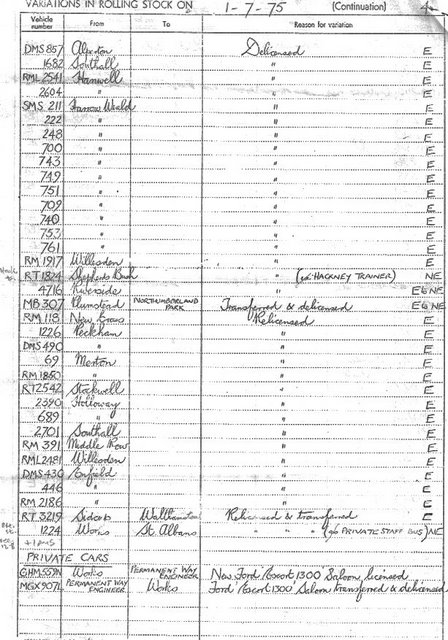 VARIATIONS IN ROLLING STOCK ON 1-7-75 (Continuation) 4
Vehicle number From To Reason for variation
DMS 857 Alperton Delicensed E
1682 Southall " E
RML 2541 Hanwell " E
2604 " " E
SMS 211 Harrow Weald " E
222 " " E
248 " " E
700 " " E
743 " " E
749 " " E
751 " " E
709 " " E
740 " " E
753 " " E
761 " " E
RM 1917 Willesden " E
RT 1824 Shepherds Bush " (ex HACKNEY TRAINER) NE
4716 Riverside " E & NE
MB 307 Plumstead NORTHUMBERLAND PARK Transferred & delicensed E & NE
RM 118 New Cross Relicensed E
1226 Peckham " E
DMS 490 " " E
69 Merton " E
RM 1850 " " E
RT 2542 Stockwell " E
2390 Holloway " E
689 " " E
2701 Southall " E
RM 391 Middle Row " E
RML 2481 Willesden " E
DMS 430 Enfield " E
446 " " E
RM 2186 " " E
RT 3219 Sidcup Walthamstow Relicensed & transferred E
1224 Works St. Albans " " " PRIVATE STAFF BUS) NE
PRIVATE CARS
GHM 559N Works PERMANENT WAY ENGINEER New Ford 'Escort 1300' Saloon licensed
MGX 907L PERMANENT WAY ENGINEER Works Ford 'Escort 1300' Saloon transferred & delicensed